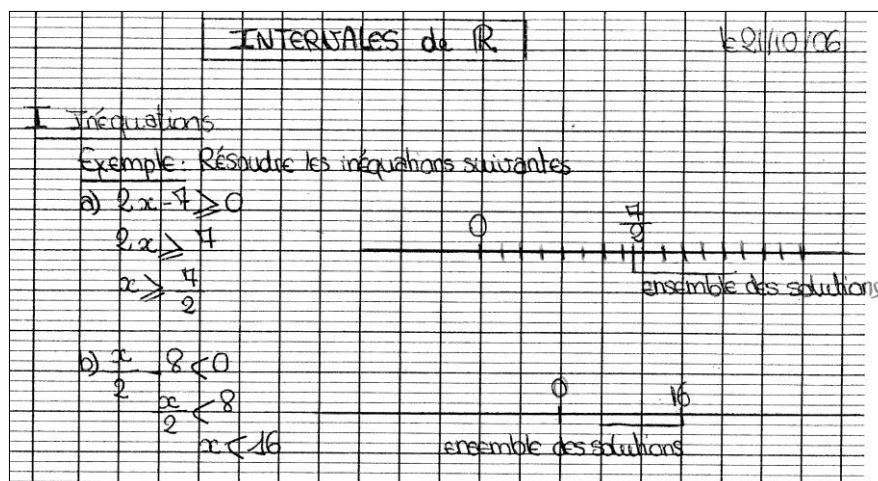 INTERVALES de ℝ
le 21/10/06
I Inéquations
Exemple: Résoudre les inéquations suivantes
a) 2x-7⩾0
2x⩾7
x⩾7/2
0 7/2
ensemble des solutions
b) x/2-8<0
x/2<8
x<16
0 16
ensemble des solutions